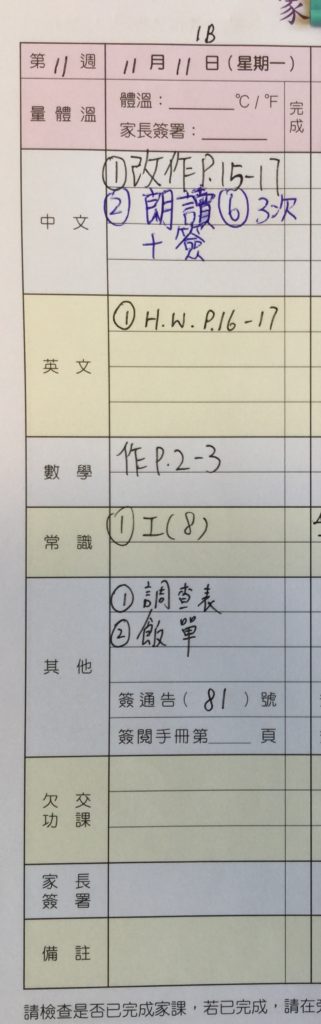 家
1B
第 11 週 11 月 11 日 (星期一)
量體溫 體溫：______°C / °F 完成
家長簽署：______
中文 ① 改作 P.15-17
② 朗讀 ⑥ 3次
+ 簽
英文 ① H.W. P.16-17
數學 作 P.2-3
常識 ① 工(8)
其他 ① 調查表
② 飯單
簽通告 ( 81 ) 號
簽閱手冊第____頁
欠交功課
家長簽署
備註
請檢查是否已完成家課，若已完成，請在